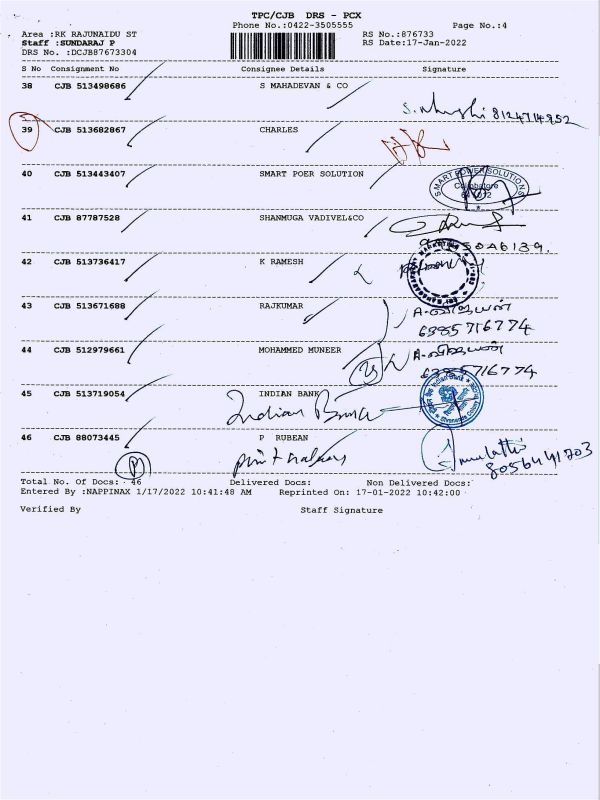 TPC/CJB DRS - PCX
Phone No.:0422-3505555 Page No.:4
Area :RK RAJUNAIDU ST RS No.:876733
Staff :SUNDARAJ P RS Date:17-Jan-2022
DRS No. :DCJB87673304
S No Consignment No Consignee Details Signature
38 CJB 513498686 S MAHADEVAN & CO
8124714952
39 CJB 513682867 CHARLES
40 CJB 513443407 SMART POER SOLUTION
SMART POWER SOLUTIONS
Coimbatore
41 CJB 87787528 SHANMUGA VADIVEL&CO
42 CJB 513736417 K RAMESH
43 CJB 513671688 RAJKUMAR
6385716774
44 CJB 512979661 MOHAMMED MUNEER
6385716774
45 CJB 513719054 INDIAN BANK
Indian Bank
46 CJB 88073445 P RUBEAN
Total No. Of Docs: 46 Delivered Docs: Non Delivered Docs:
Entered By :NAPPINAX 1/17/2022 10:41:48 AM Reprinted On: 17-01-2022 10:42:00
Verified By Staff Signature